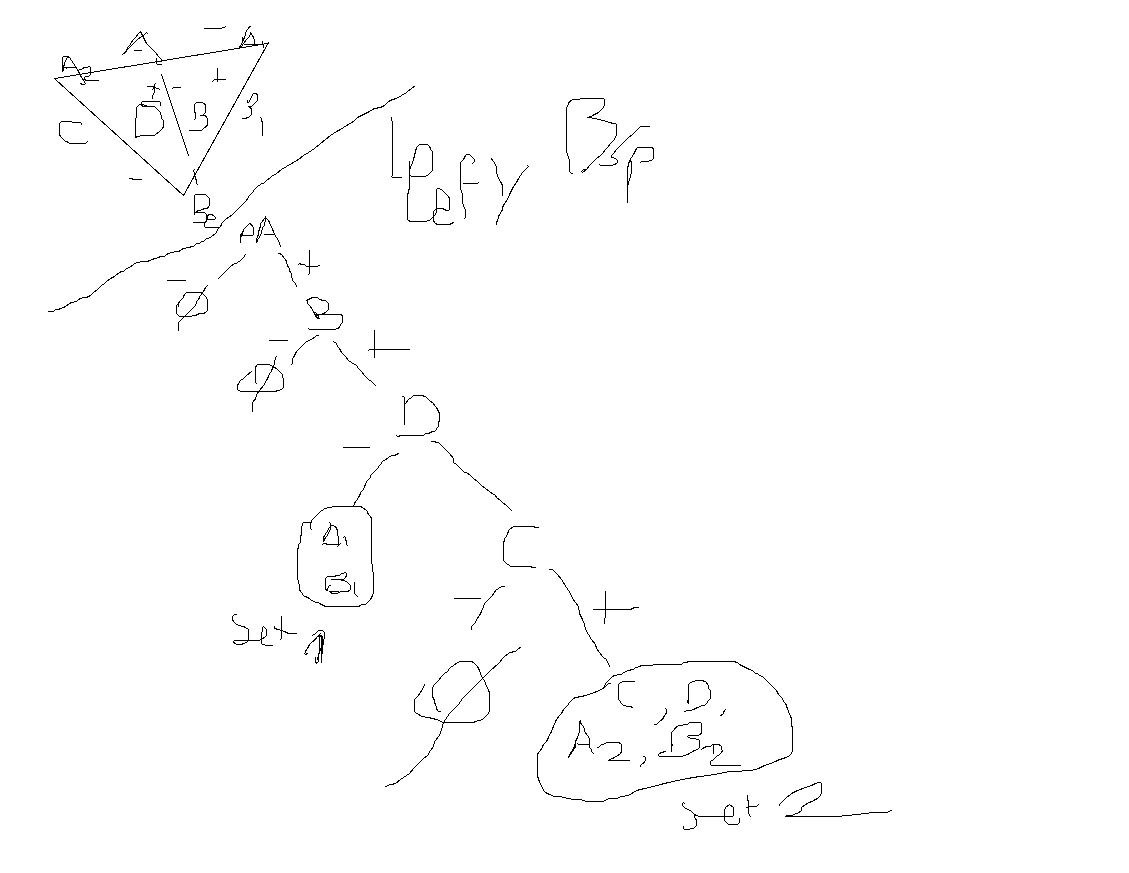 A - A1
A2 - +
+ -
C D B B1
-
B2
Leafy Bsp
A
- +
∅ B
- +
∅ D
-
A1 C
B1 - +
set 1
∅ C, D,
A2, B2
set 2